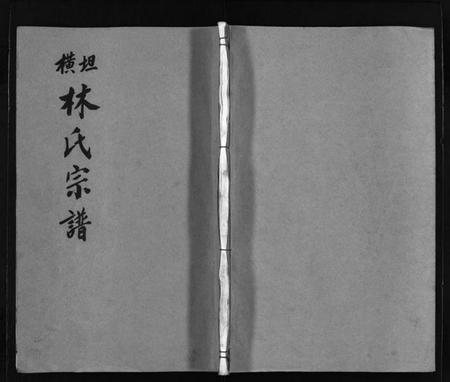 橫坦
林氏宗譜